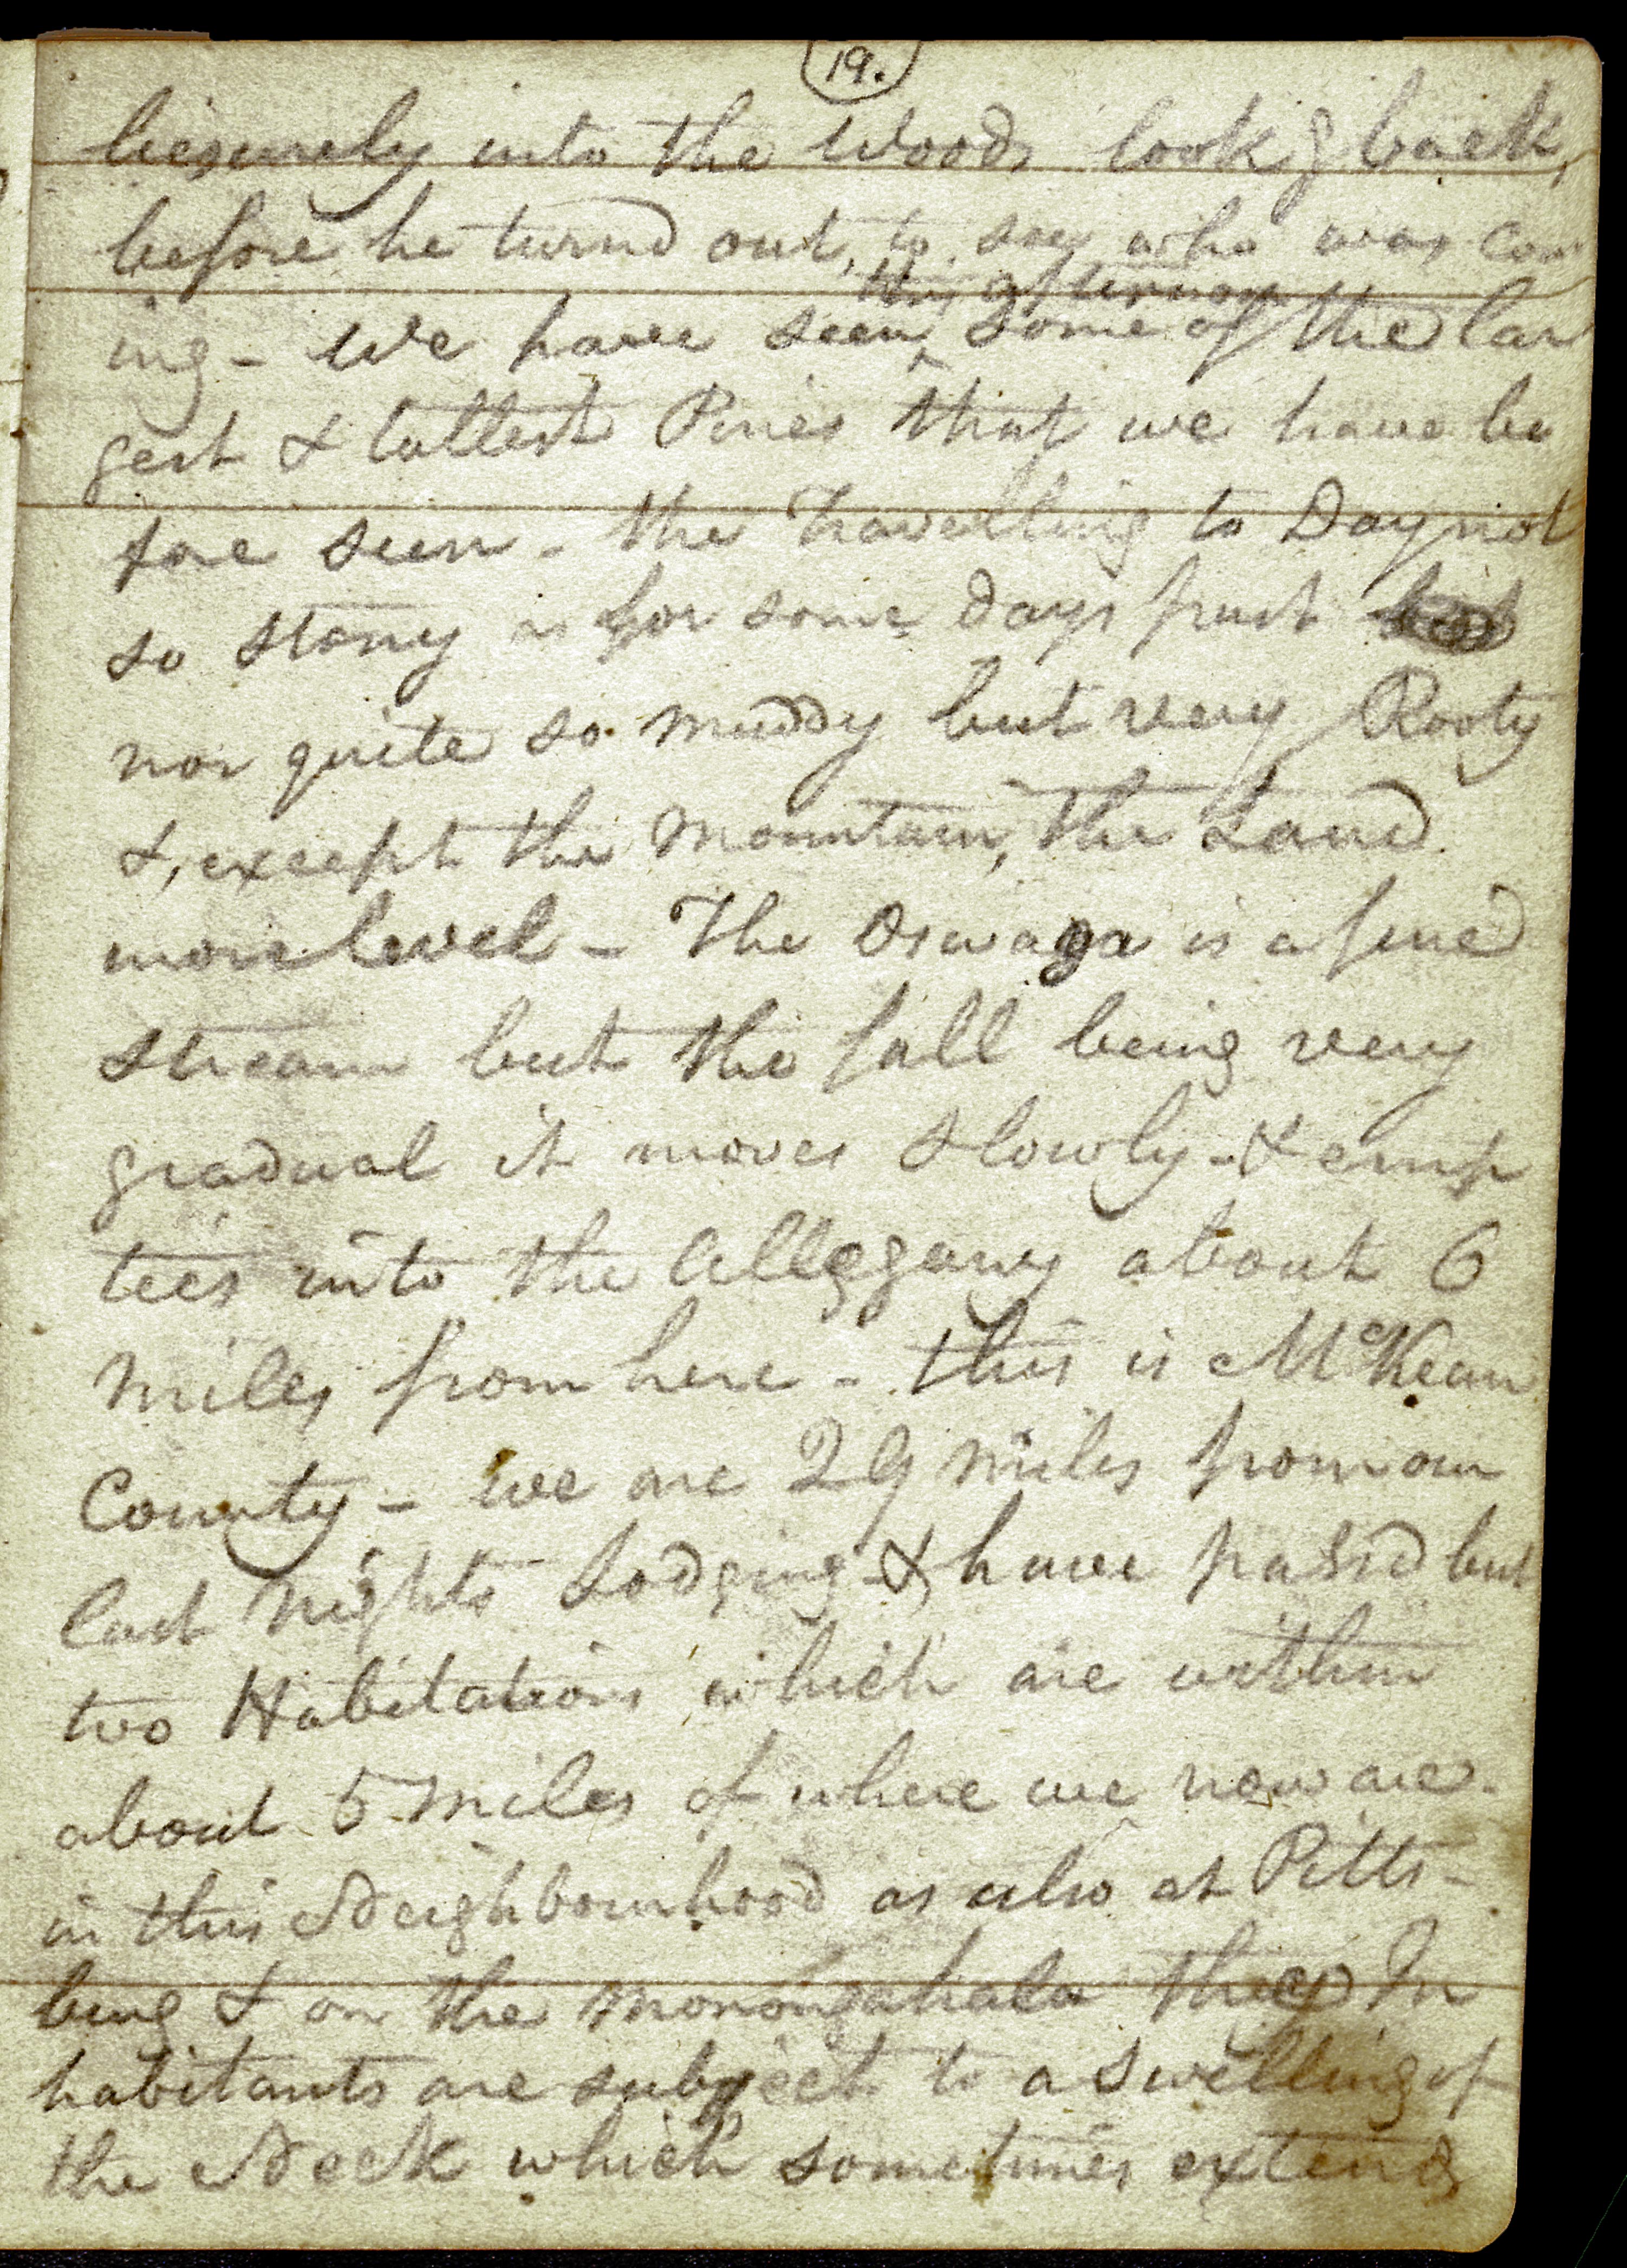 19.
liesurely into the Woods lookg back,
before he turnd out, to see who was com
ing - We have seen ^ some of the lar
this afternoon
gest & tallest Pines that we have be
fore seen - the Travelling to Day not
so stony as for some days past
nor quite so muddy but very Rooty
&, except the Mountain, the Land
more level - The Oswaga is a fine
stream but the fall being very
gradual it moves slowly - & emp
ties into the Allegany about 6
miles from here - this is McKean
County - we are 29 miles from our
last nights Lodging & have passd but
two Habitations which are within
about 5 miles of where we now are -
in this Neighbourhood as also at Pitts-
burg & on the Monongahala the In
habitants are subject to a swelling of
the Neck which sometimes extends